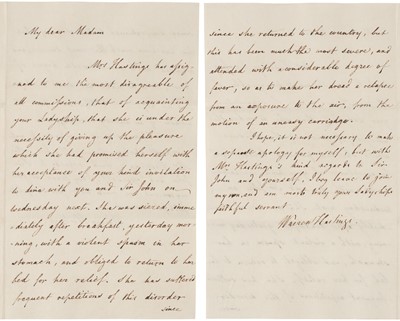 My dear Madam
Mrs Hastings has assig-
ned to me the most disagreable of
all commissions, that of acquainting
your Ladyship, that she is under the
necessity of giving up the pleasure
which she had promised herself with
her acceptance of your kind invitation
to dine with you and Sir John on
Wednesday next. She was seized, imme-
diately after breakfast, yesterday mor-
ning, with a violent spasm in her
stomach, and obliged to return to her
bed for her relief. She has suffered
frequent repetitions of this disorder
since
since she returned to the country, but
this has been much the most severe, and
attended with a considerable degree of
fever, so as to make her dread a relapse
from an exposure to the air, from the
motion of an uneasy carriage.
I hope, it is not necessary to make
a separate apology for myself; but with
Mrs Hastings's kind regards to Sir
John and yourself, I beg leave to join
my own, and am most truly your Ladyships
faithful servant
Warren Hastings